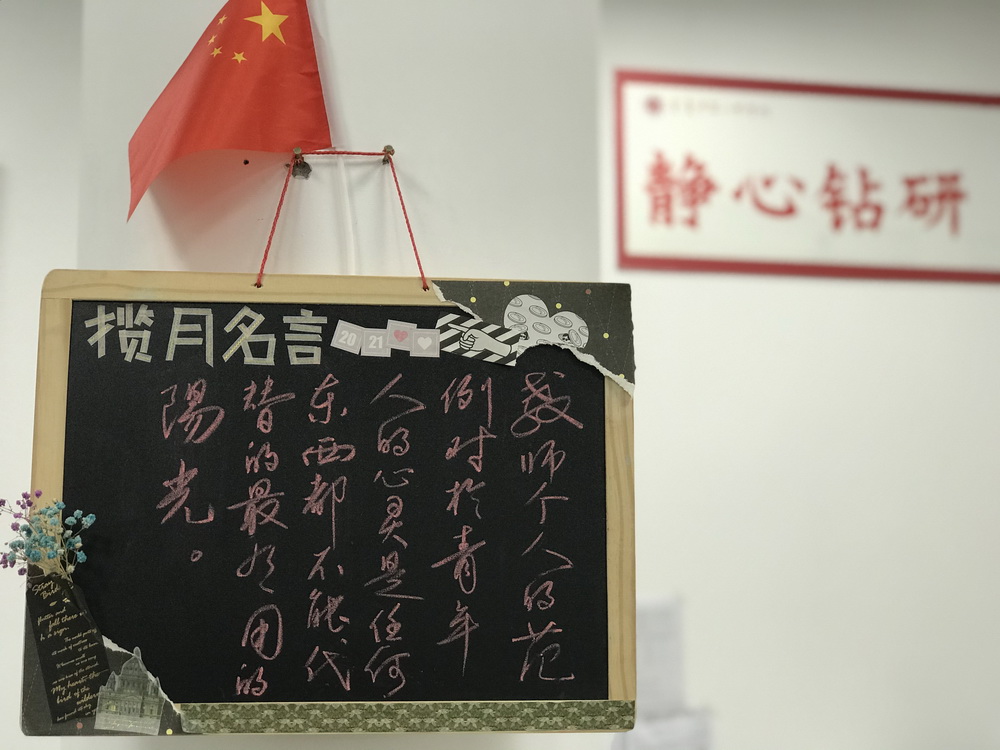 揽月名言
20 21
教师个人的范
例对於青年
人的心灵是任何
东西都不能代
替的最有用的
陽光。
静心钻研
Stray
Birds